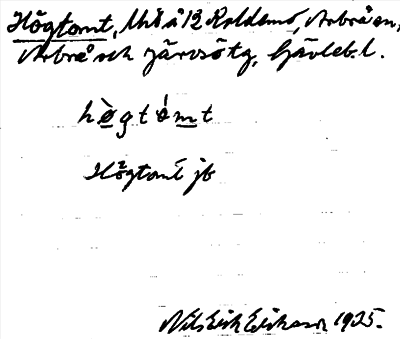 Högtomt, Uti å 12 Koldemo, Arbrå sn,
Arbrå och Järvsö tg, Gävleb. l.
hògtómt
Högtomt jb
Nils Erik Eriksson 1925.